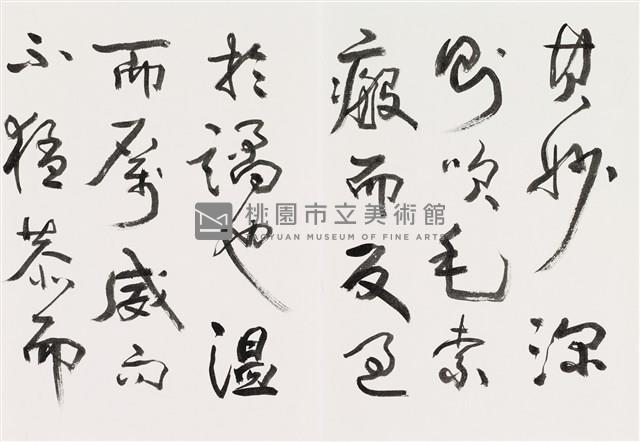 其妙深
則吹毛索
瘢而反過
於譎也溫
而厲威而
不猛恭而
桃園市立美術館
TAOYUAN MUSEUM OF FINE ARTS